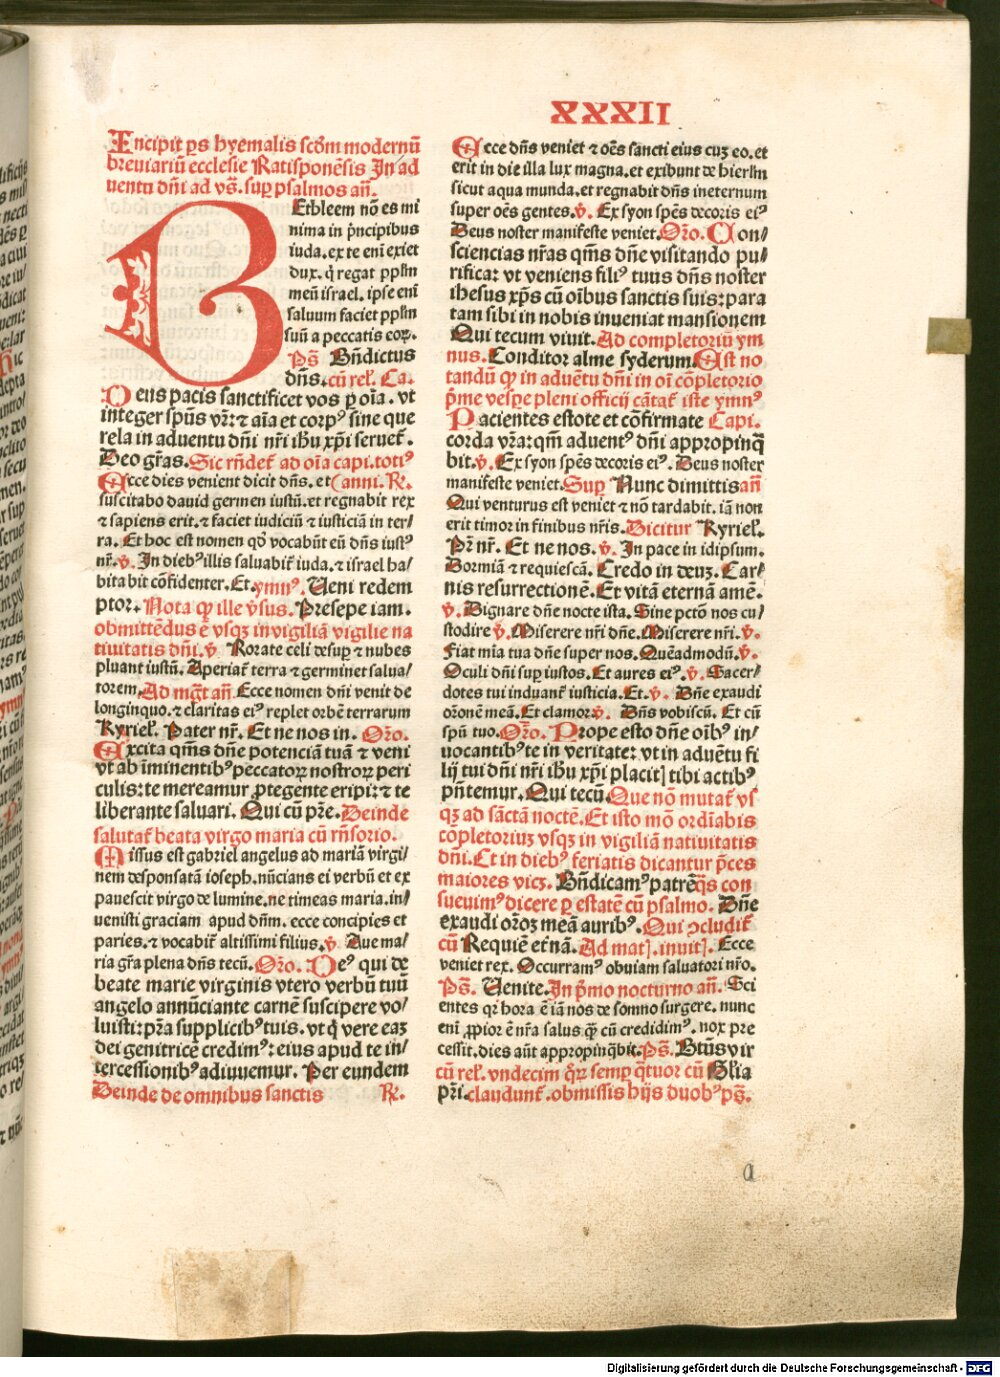 XXXII
Incipit ps hyemalis scd̄m modernū
breviariū ecclesie Ratisponēsis In ad
uentu dn̄i ad vs̄. sup psalmos an̄.
BEtbleem nō es mi
nima in p̄ncipibus
iuda. ex te eni exiet
dux. q̇ regat pplm̄
meū israel. ipse eni
saluum faciet pplm̄
suū a peccatis eoꝝ.
Ps̄ Bn̄dictus
dn̄s. cū rel̄. Ca.
Deus pacis sanctificet vos ꝑ oīa. vt
integer spūs vr̄: ⁊ aīa et corpꝰ sine que
rela in aduentu dn̄i nr̄i ihu xp̄i seruet̄.
Deo gr̄as. Sic rn̄det̄ ad oīa capi. totiꝰ
Ecce dies venient dicit dn̄s. et (anni. R.
suscitabo dauid germen iustū. et regnabit rex
⁊ sapiens erit. ⁊ faciet iudiciū ⁊ iusticiā in ter/
ra. Et hoc est nomen qḋ vocabūt eū dn̄s iustꝰ
nr̄. v̄. In diebꝰ illis saluabit̄ iuda. ⁊ israel ha/
bitabit cōfidenter. Et. ymnꝰ. Veni redem
ptor. Nota ꝙ ille v̄sus. Presepe iam.
obmittēdus ē vsqꝫ in vigiliā vigilie na
tiuitatis dn̄i. v̄ Rorate celi desuꝑ ⁊ nubes
pluant iustū. Aperiat̄ terra ⁊ germinet salua/
torem. Ad mgt̄ an̄ Ecce nomen dn̄i venit de
longinquo. ⁊ claritas eiꝰ replet orbē terrarum
Kyriel̄. Pater nr̄. Et ne nos in. Oro.
Excita qm̄s dn̄e potenciā tuā ⁊ veni
vt ab īminentibꝰ peccatoꝝ nostroꝝ peri
culis: te mereamur ꝓtegente eripi: ⁊ te
liberante saluari. Qui cū pr̄e. Deinde
salutat̄ beata virgo maria cū rn̄sorio.
Missus est gabriel angelus ad mariā virgi/
nem desponsatā ioseph. nūcians ei verbū et ex
pauescit virgo de lumine. ne timeas maria. in/
uenisti graciam apud dn̄m. ecce concipies et
paries. ⁊ vocabit̄ altissimi filius. v̄ Aue ma/
ria gr̄a plena dn̄s tecū. Oro. Deꝰ qui de
beate marie virginis vtero verbū tuū
angelo annūciante carnē suscipere vo/
luisti: pr̄a supplicibꝰ tuis. vt q̇ vere eaꝫ
dei genitricē credimꝰ: eius apud te in/
tercessionibꝰ adiuuemur. Per eundem
Deinde de omnibus sanctis R.
Ecce dn̄s veniet ⁊ oēs sancti eius cuꝫ eo. et
erit in die illa lux magna. et exibunt de hierl̄m
sicut aqua munda. et regnabit dn̄s ineternum
super oēs gentes. v̄. Ex syon spēs decoris eiꝰ
Deus noster manifeste veniet. Oro. Con/
sciencias nr̄as qm̄s dn̄e visitando pu/
rifica: vt veniens filiꝰ tuus dn̄s noster
ihesus xp̄s cū oībus sanctis suis: para
tam sibi in nobis inueniat mansionem
Qui tecum viuit. Ad completoriū ym
nus. Conditor alme syderum. Est no
tandū ꝙ in aduētu dn̄i in oī cōpletorio
p̄me vesꝑe pleni officij cātat̄ iste ymnꝰ
Pacientes estote et cōfirmate Capi.
corda vr̄a: qm̄ aduentꝰ dn̄i appropinq̄
bit. v̄. Ex syon spēs decoris eiꝰ. Deus noster
manifeste veniet. Sup Nunc dimittis an̄
Qui venturus est veniet ⁊ nō tardabit. iā non
erit timor in finibus nr̄is. Dicitur Kyriel̄.
Pr̄ nr̄. Et ne nos. v̄. In pace in idipsum.
Dormiā ⁊ requiescā. Credo in deuꝫ. Car/
nis resurrectionē. Et vitā eternā amē.
v̄. Dignare dn̄e nocte ista. Sine pctō nos cu/
stodire v̄. Miserere nr̄i dn̄e. Miserere nr̄i. v̄.
Fiat mīa tua dn̄e super nos. Quēadmodū. v̄.
Oculi dn̄i sup iustos. Et aures eiꝰ. v̄. Sacer/
dotes tui induant̄ iusticia. Et. v̄. Dn̄e exaudi
orōnē meā. Et clamor. v̄. Dn̄s vobiscū. Et cū
spū tuo. Oro. Prope esto dn̄e oībꝰ in/
uocantibꝰ te in veritate: vt in aduētu fi
lij tui dn̄i nr̄i ihu xp̄i placitꝭ tibi actibꝰ
pn̄temur. Qui tecū. Que nō mutat̄ vs
qꝫ ad sāctā noctē. Et isto mō ordīabis
cōpletoriuꝫ vsqꝫ in vigiliā natiuitatis
dn̄i. Et in diebꝰ feriatis dicantur p̄ces
maiores vicꝫ. Bn̄dicamꝰ patrē qs con
sueuimꝰ dicere ꝑ estatē cū psalmo. Dn̄e
exaudi orōꝫ meā auribꝰ. Qui ꝯcludit̄
cū Requiē et̄nā. Ad matꝭ. inuitꝭ. Ecce
veniet rex. Occurramꝰ obuiam saluatori nr̄o.
Ps̄. Venite. In p̄mo nocturno an̄. Sci
entes qꝛ hora ē iā nos de somno surgere. nunc
eni ꝓpior ē nr̄a salus q̄ cū credidimꝰ. nox pre
cessit. dies aūt appropinq̄bit. Ps̄. Btūs vir
cū rel̄. vndecim q̄ꝫ semꝑ q̄tuor cū Gl̄ia
pr̄i. claudunt̄. obmissis hijs duobꝰ ps̄.
a
Digitalisierung gefördert durch die Deutsche Forschungsgemeinschaft - DFG